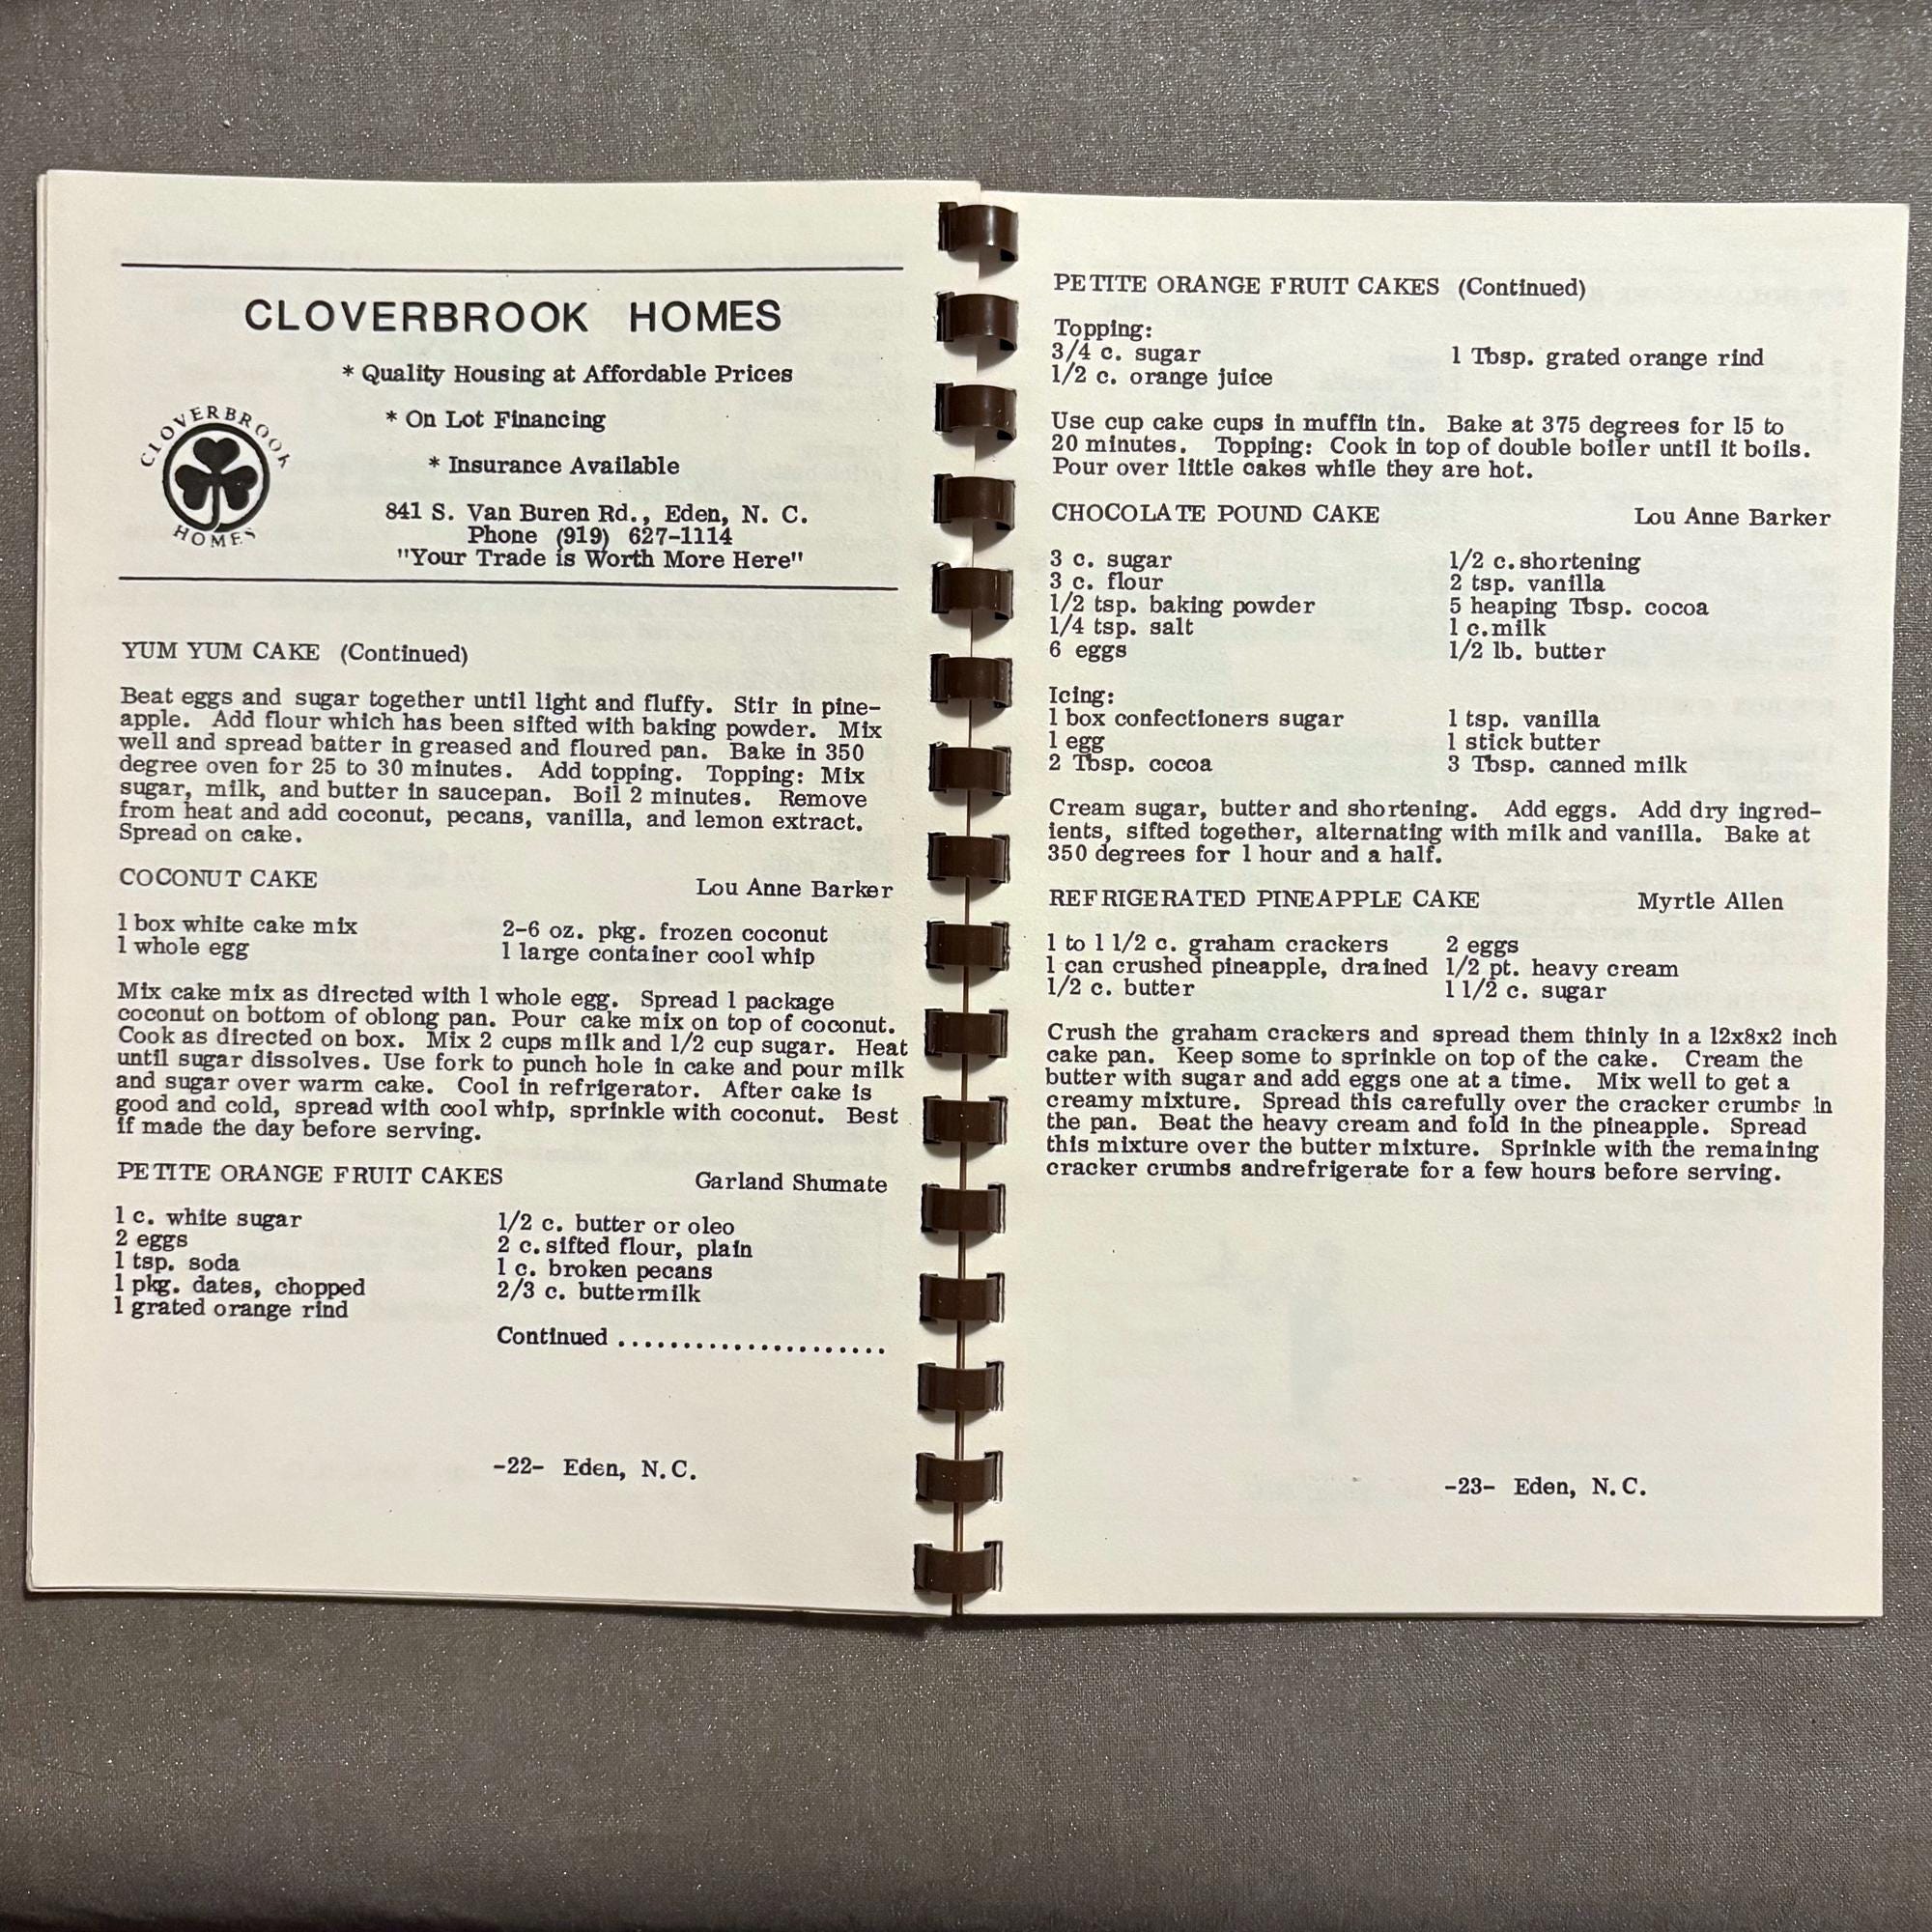 CLOVERBROOK HOMES
* Quality Housing at Affordable Prices
* On Lot Financing
* Insurance Available
CLOVERBROOK
HOMES
841 S. Van Buren Rd., Eden, N. C.
Phone (919) 627-1114
"Your Trade is Worth More Here"
YUM YUM CAKE (Continued)
Beat eggs and sugar together until light and fluffy. Stir in pine-
apple. Add flour which has been sifted with baking powder. Mix
well and spread batter in greased and floured pan. Bake in 350
degree oven for 25 to 30 minutes. Add topping. Topping: Mix
sugar, milk, and butter in saucepan. Boil 2 minutes. Remove
from heat and add coconut, pecans, vanilla, and lemon extract.
Spread on cake.
COCONUT CAKE Lou Anne Barker
1 box white cake mix 2-6 oz. pkg. frozen coconut
1 whole egg 1 large container cool whip
Mix cake mix as directed with 1 whole egg. Spread 1 package
coconut on bottom of oblong pan. Pour cake mix on top of coconut.
Cook as directed on box. Mix 2 cups milk and 1/2 cup sugar. Heat
until sugar dissolves. Use fork to punch hole in cake and pour milk
and sugar over warm cake. Cool in refrigerator. After cake is
good and cold, spread with cool whip, sprinkle with coconut. Best
if made the day before serving.
PETITE ORANGE FRUIT CAKES Garland Shumate
1 c. white sugar 1/2 c. butter or oleo
2 eggs 2 c. sifted flour, plain
1 tsp. soda 1 c. broken pecans
1 pkg. dates, chopped 2/3 c. buttermilk
1 grated orange rind
Continued .....................
-22- Eden, N.C.
PETITE ORANGE FRUIT CAKES (Continued)
Topping:
3/4 c. sugar 1 Tbsp. grated orange rind
1/2 c. orange juice
Use cup cake cups in muffin tin. Bake at 375 degrees for 15 to
20 minutes. Topping: Cook in top of double boiler until it boils.
Pour over little cakes while they are hot.
CHOCOLATE POUND CAKE Lou Anne Barker
3 c. sugar 1/2 c. shortening
3 c. flour 2 tsp. vanilla
1/2 tsp. baking powder 5 heaping Tbsp. cocoa
1/4 tsp. salt 1 c. milk
6 eggs 1/2 lb. butter
Icing:
1 box confectioners sugar 1 tsp. vanilla
1 egg 1 stick butter
2 Tbsp. cocoa 3 Tbsp. canned milk
Cream sugar, butter and shortening. Add eggs. Add dry ingred-
ients, sifted together, alternating with milk and vanilla. Bake at
350 degrees for 1 hour and a half.
REFRIGERATED PINEAPPLE CAKE Myrtle Allen
1 to 1 1/2 c. graham crackers 2 eggs
1 can crushed pineapple, drained 1/2 pt. heavy cream
1/2 c. butter 1 1/2 c. sugar
Crush the graham crackers and spread them thinly in a 12x8x2 inch
cake pan. Keep some to sprinkle on top of the cake. Cream the
butter with sugar and add eggs one at a time. Mix well to get a
creamy mixture. Spread this carefully over the cracker crumbs in
the pan. Beat the heavy cream and fold in the pineapple. Spread
this mixture over the butter mixture. Sprinkle with the remaining
cracker crumbs andrefrigerate for a few hours before serving.
-23- Eden, N.C.